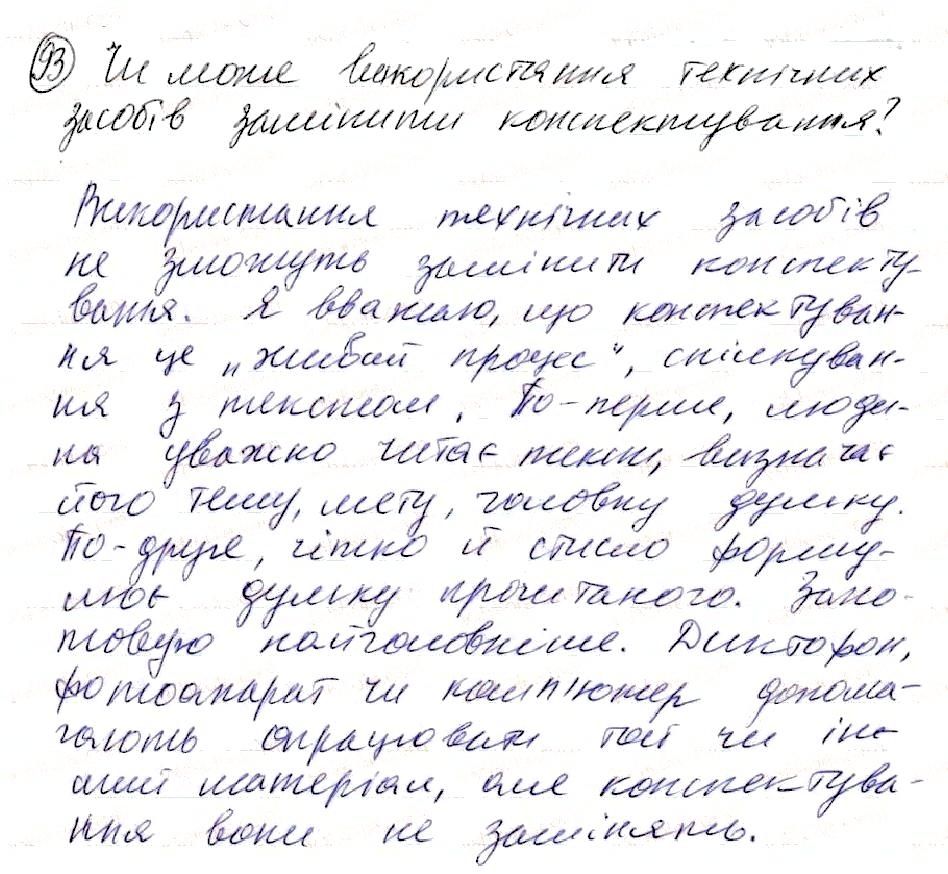 93 Чи може використання технічних
засобів замінити конспектування?
Використання технічних засобів
не зможуть замінити конспекту-
вання. Я вважаю, що конспектуван-
ня це „живий процес", спілкуван-
ня з текстом. По-перше, люди-
на уважно читає текст, визначає
його тему, мету, головну думку.
По-друге, чітко й стисло форму-
лює думку прочитаного. Зано-
товую найголовніше. Диктофон,
фотоапарат чи комп'ютер допома-
гають опрацювати той чи ін-
ший матеріал, але конспектува-
ння вони не замінять.